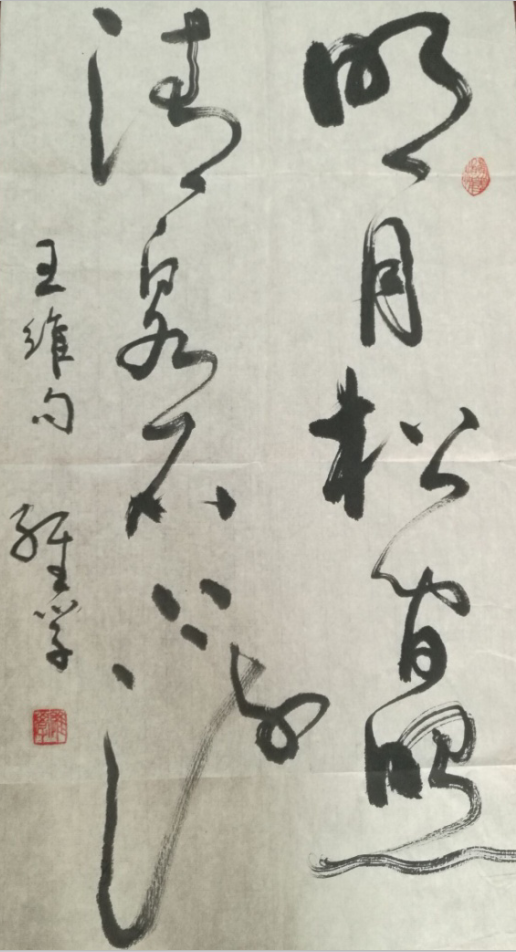 明月松间照
清泉石上流
王维句